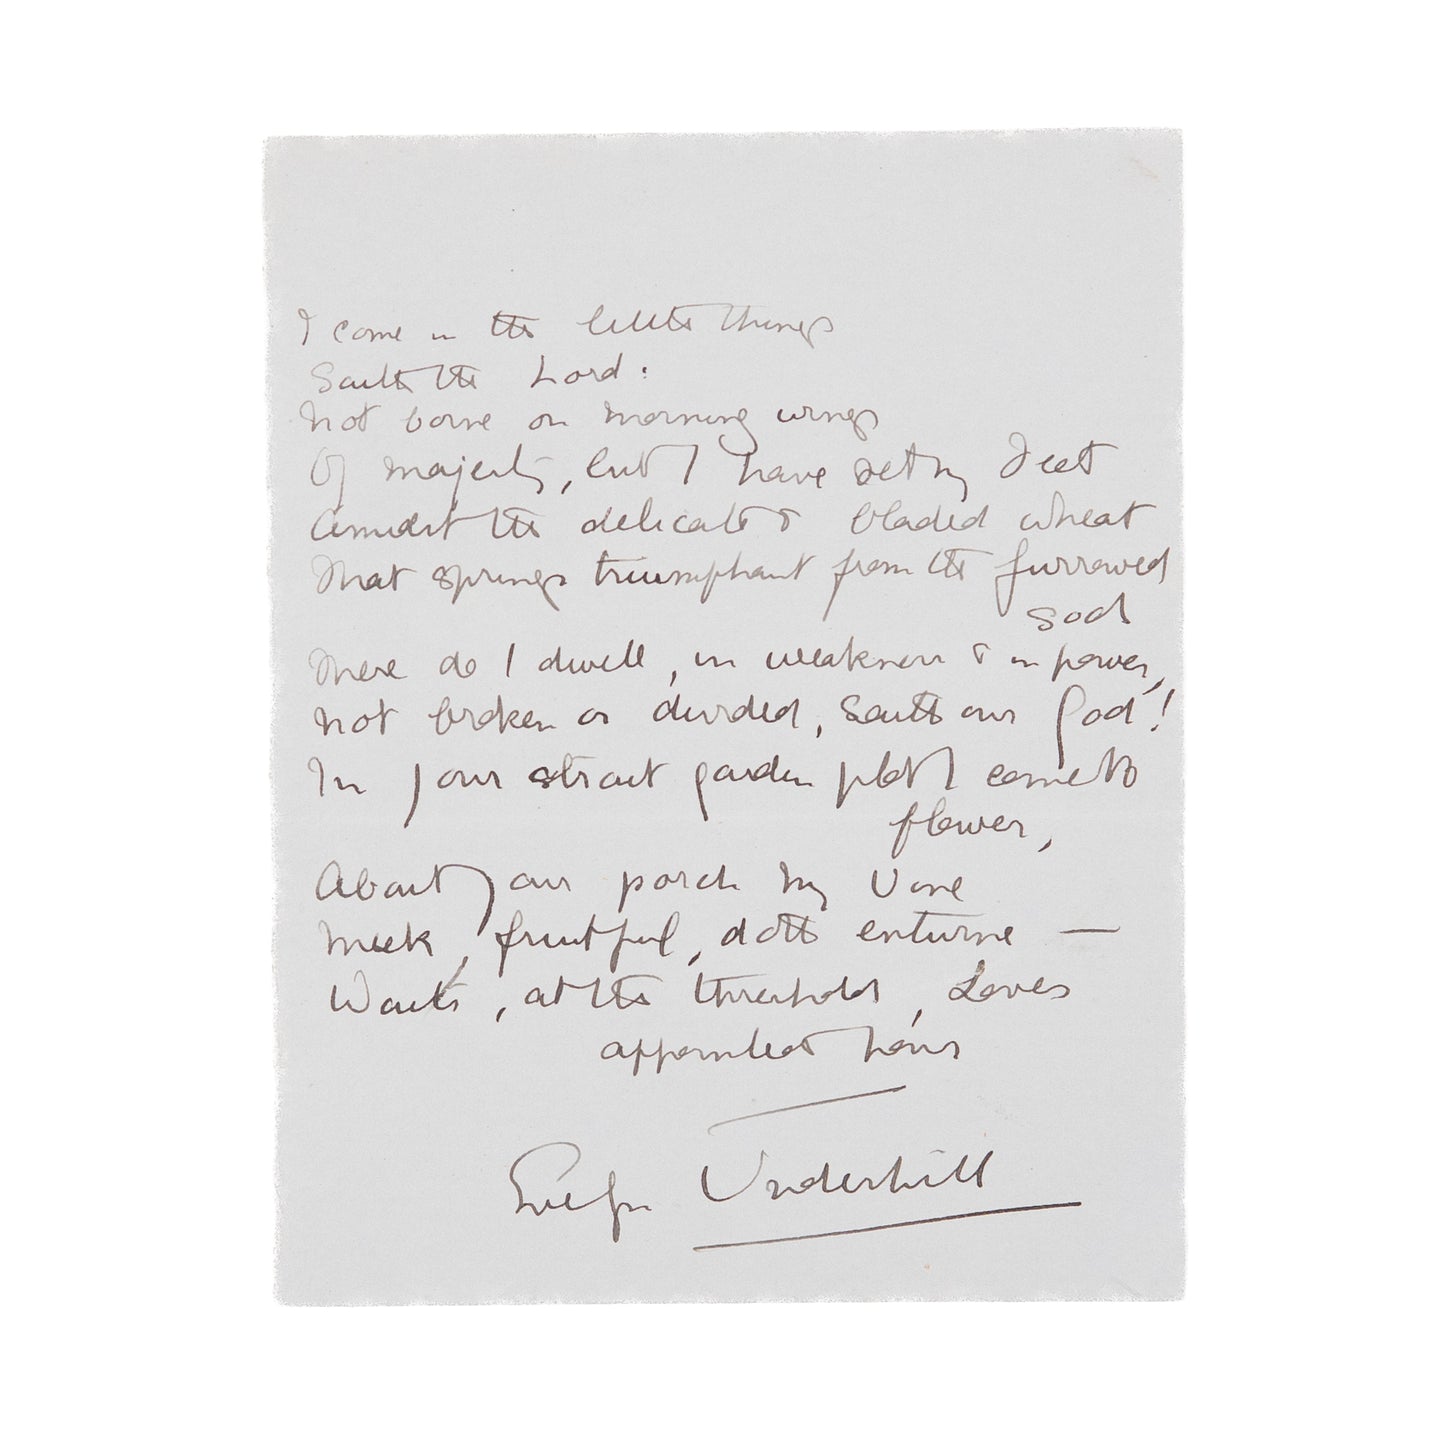 I come in the little things
Saith the Lord:
Not borne on morning wings
Of majesty, but I have set my Feet
Amidst the delicate & bladed wheat
That springs triumphant from the furrowed
sod
There do I dwell, in weakness & in power,
Not broken or divided, saith our God!
In your strait garden plot I come to
flower,
About your porch my Vine
Meek, fruitful, doth entwine —
Waits, at the threshold, Love's
appointed hour
Evelyn Underhill